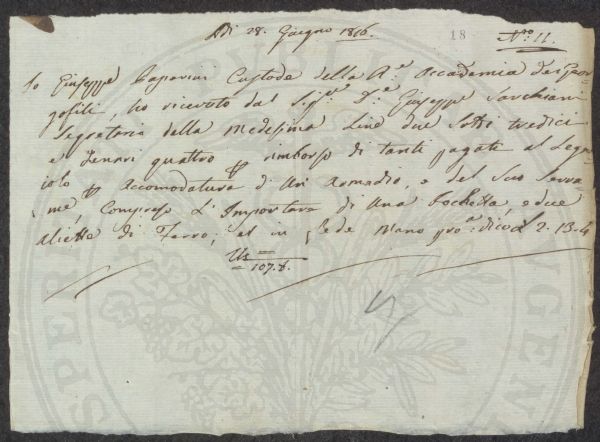 Adi 28. Giugno 1816.
18
N.o 11.
Io Giuseppe Caparini Custode della R.e Accademia dei Geor
gofili, ho ricevuto dal Sig.re D.e Giuseppe Sarchiani
Segretario della Medesima Lire due Soldi tredici
e Denari quattro p rimborso di tanti pagati al Legna
iolo p Accomodatura d'Un Armadio, e del suo Serra
me, Compreso L'Importare di Una bochetta, e due
aliette di Ferro; ed in fede Mano pro.a dico £ 2. 13. 4
Us
107. 8.
SPER PUBLI GENE